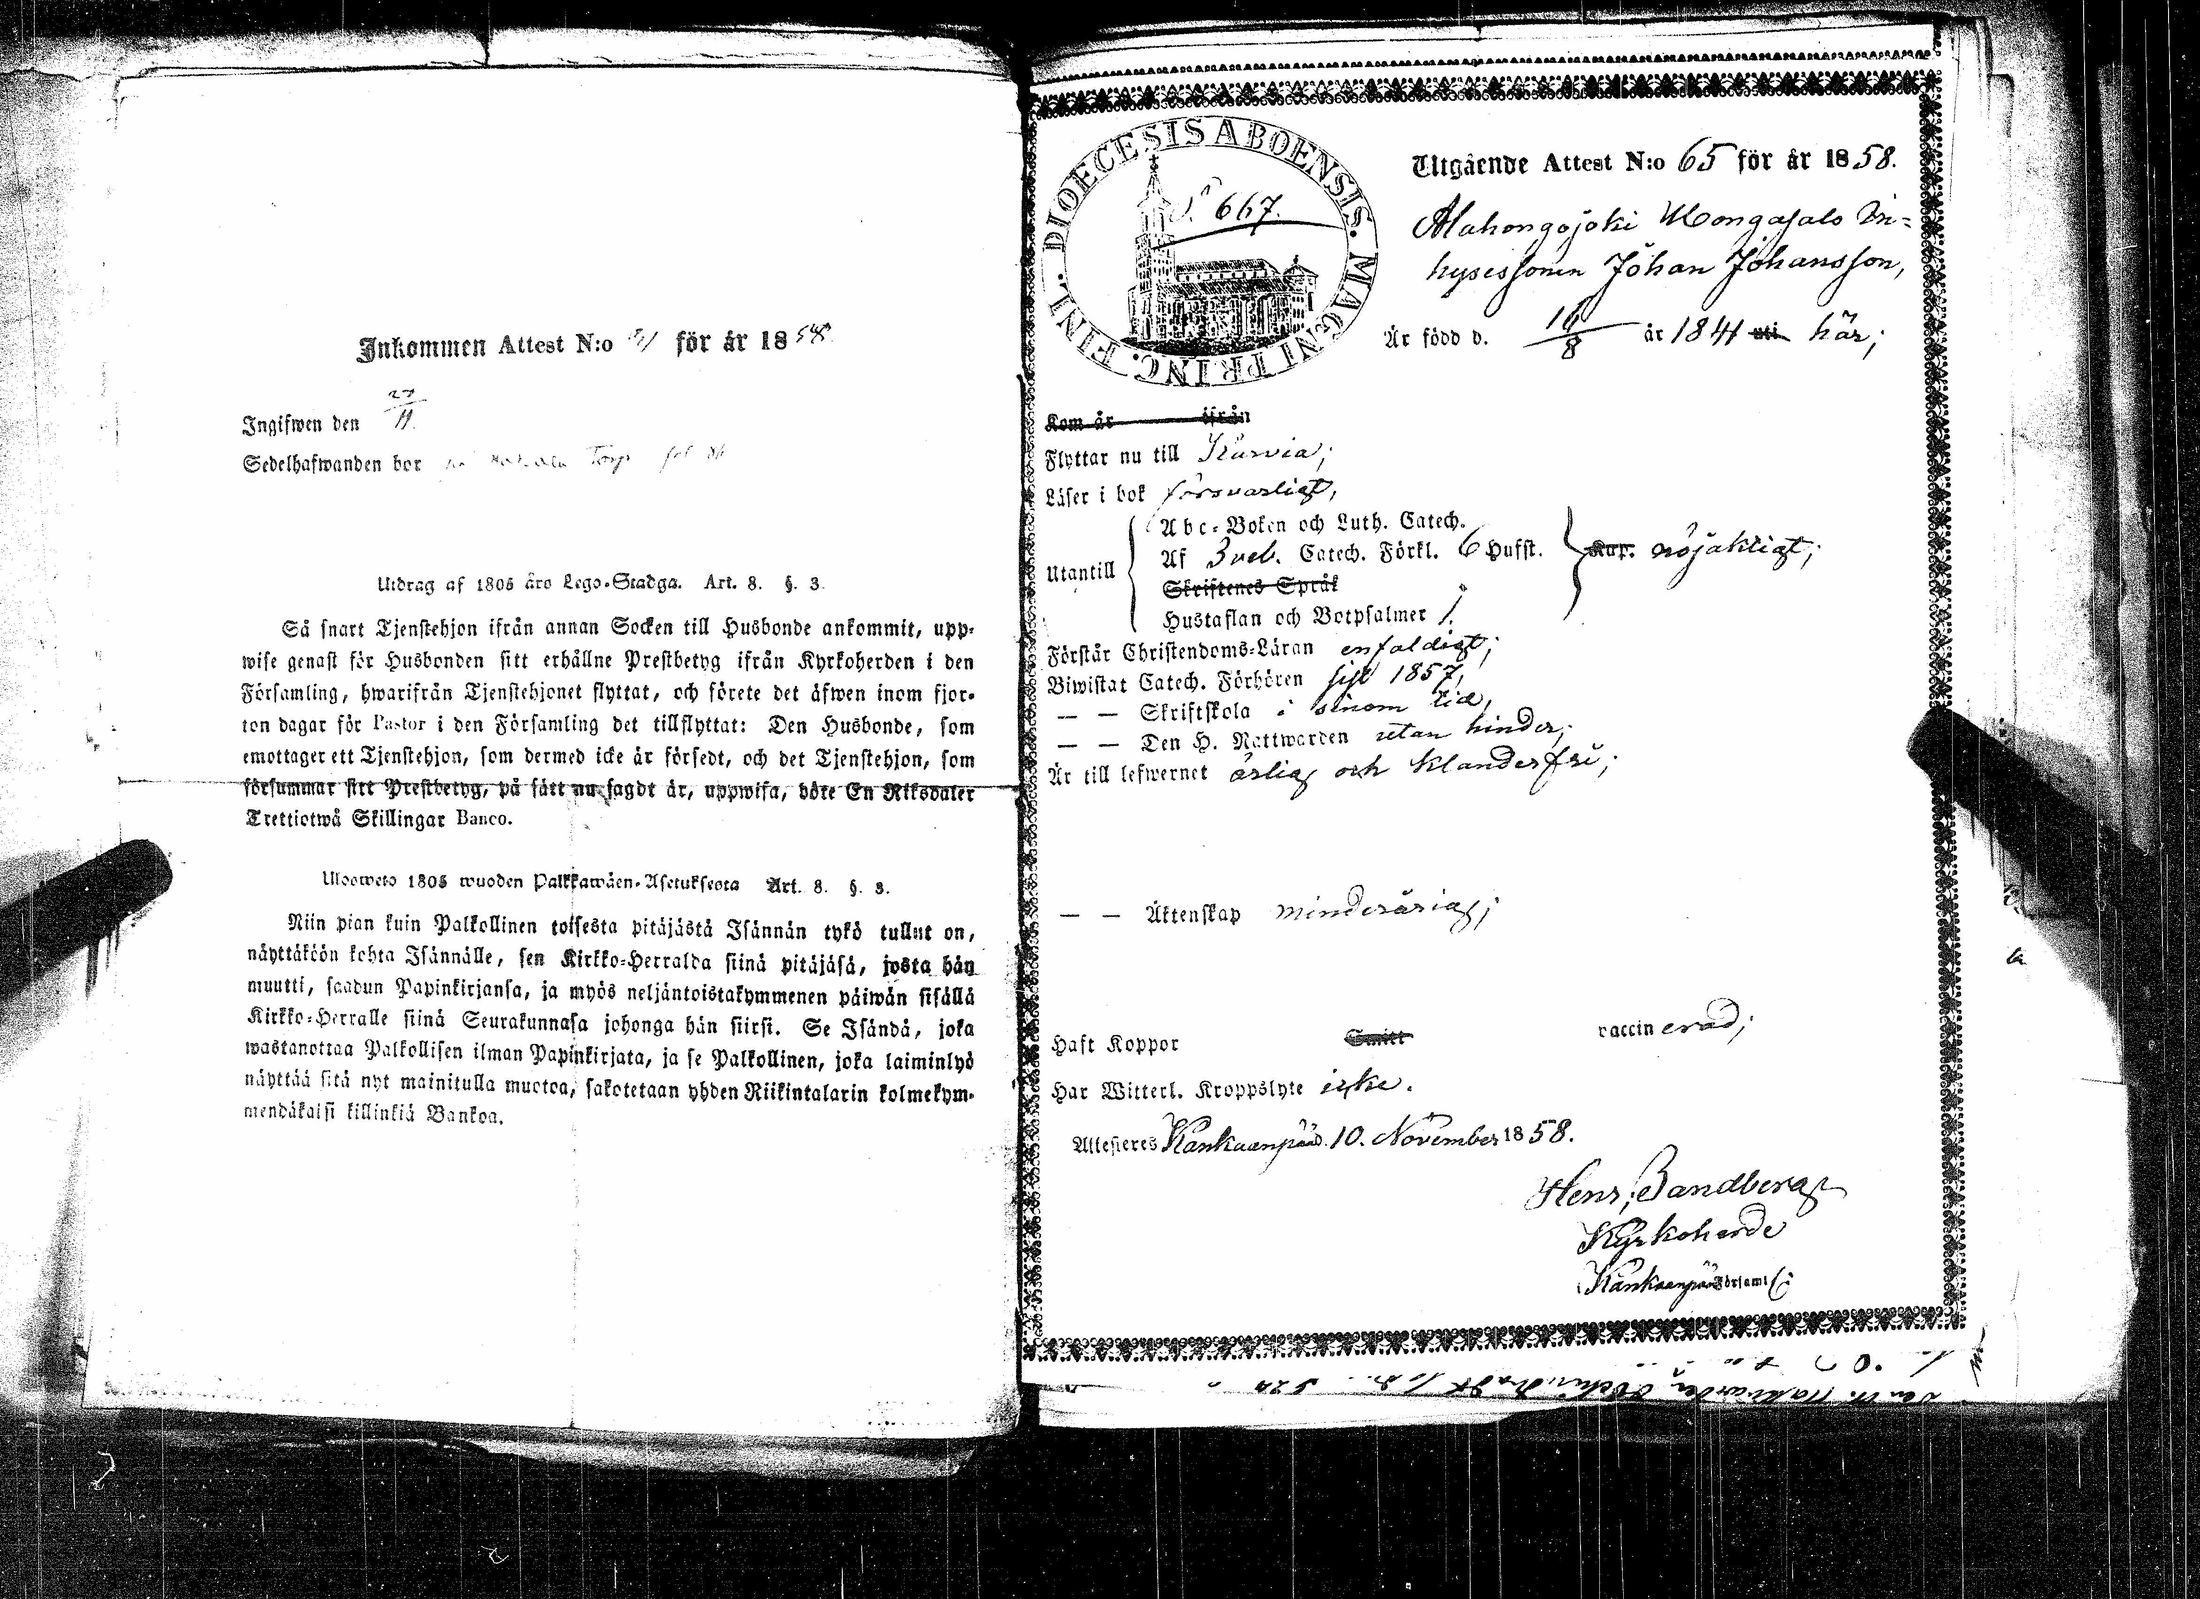 Inkommen Attest N:o för år 1858
Ingifwen den 27/11.
Sedelhafwanden bor Torp
Utdrag af 1805 års Lego-Stadga. Art. 8. §. 3.
Så snart Tjenstehjon ifrån annan Socken till Husbonde ankommit, upp-
wise genast för Husbonden sitt erhållne Prestbetyg ifrån Kyrkoherden i den
Församling, hwarifrån Tjenstehjonet flyttat, och förete det äfwen inom fjor-
ton dagar för Pastor i den Församling det tillflyttat: Den Husbonde, som
emottager ett Tjenstehjon, som dermed icke är försedt, och det Tjenstehjon, som
försummar sitt Prestbetyg, på sätt nu sagdt är, uppwisa, böte En Riksdaler
Trettiotwå Skillingar Banco.
Ulosweto 1805 wuoden Palkkawäen-Asetuksesta Art. 8. §. 3.
Niin pian kuin Palkollinen toisesta pitäjästä Isännän tykö tullut on,
näyttäköön kohta Isännälle, sen Kirkko-Herralda siinä pitäjäsä, josta hän
muutti, saadun Papinkirjansa, ja myös neljäntoistakymmenen päiwän sisällä
Kirkko-Herralle siinä Seurakunnasa johonga hän siirsi. Se Isändä, joka
wastanottaa Palkollisen ilman Papinkirjata, ja se Palkollinen, joka laiminlyö
näyttää sitä nyt mainitulla muotoa, sakotetaan yhden Riikintalarin kolmekym-
mendäkaisi killinkiä Bankoa.
DIOECESIS ABOENSIS. MAGNI PRINC. FINL.
667.
Utgående Attest N:o 65 för år 1858.
Alahongojoki Hongasalo In-
hysessonen Johan Johansson,
Är född d. 16/8 år 1841 uti här;
Kom år ifrån
Flyttar nu till Kürvia;
Läser i bok försvarligt,
Abc-Boken och Luth. Catech.
Af Sveb. Catech. Förkl. 6 Hufst. Kap. nöjaktigt;
Utantill
Skriftenes Språk
Hustaflan och Botpsalmer 1.
Förstår Christendoms-Läran enfaldigt;
Biwistat Catech. Förhören sist 1857,
— — Skriftskola i sinom tid,
— — Den H. Nattwarden utan hinder;
Är till lefwernet ärlig och klanderfri;
— — Äktenskap minderårig;
Haft Koppor Smitt vaccinerad;
Har Witterl. Kroppslyte icke.
Attesteres Kankaanpää d. 10. November 1858.
Henr. Sandberg
Kyrkoherde
Kankaanpää Församl.